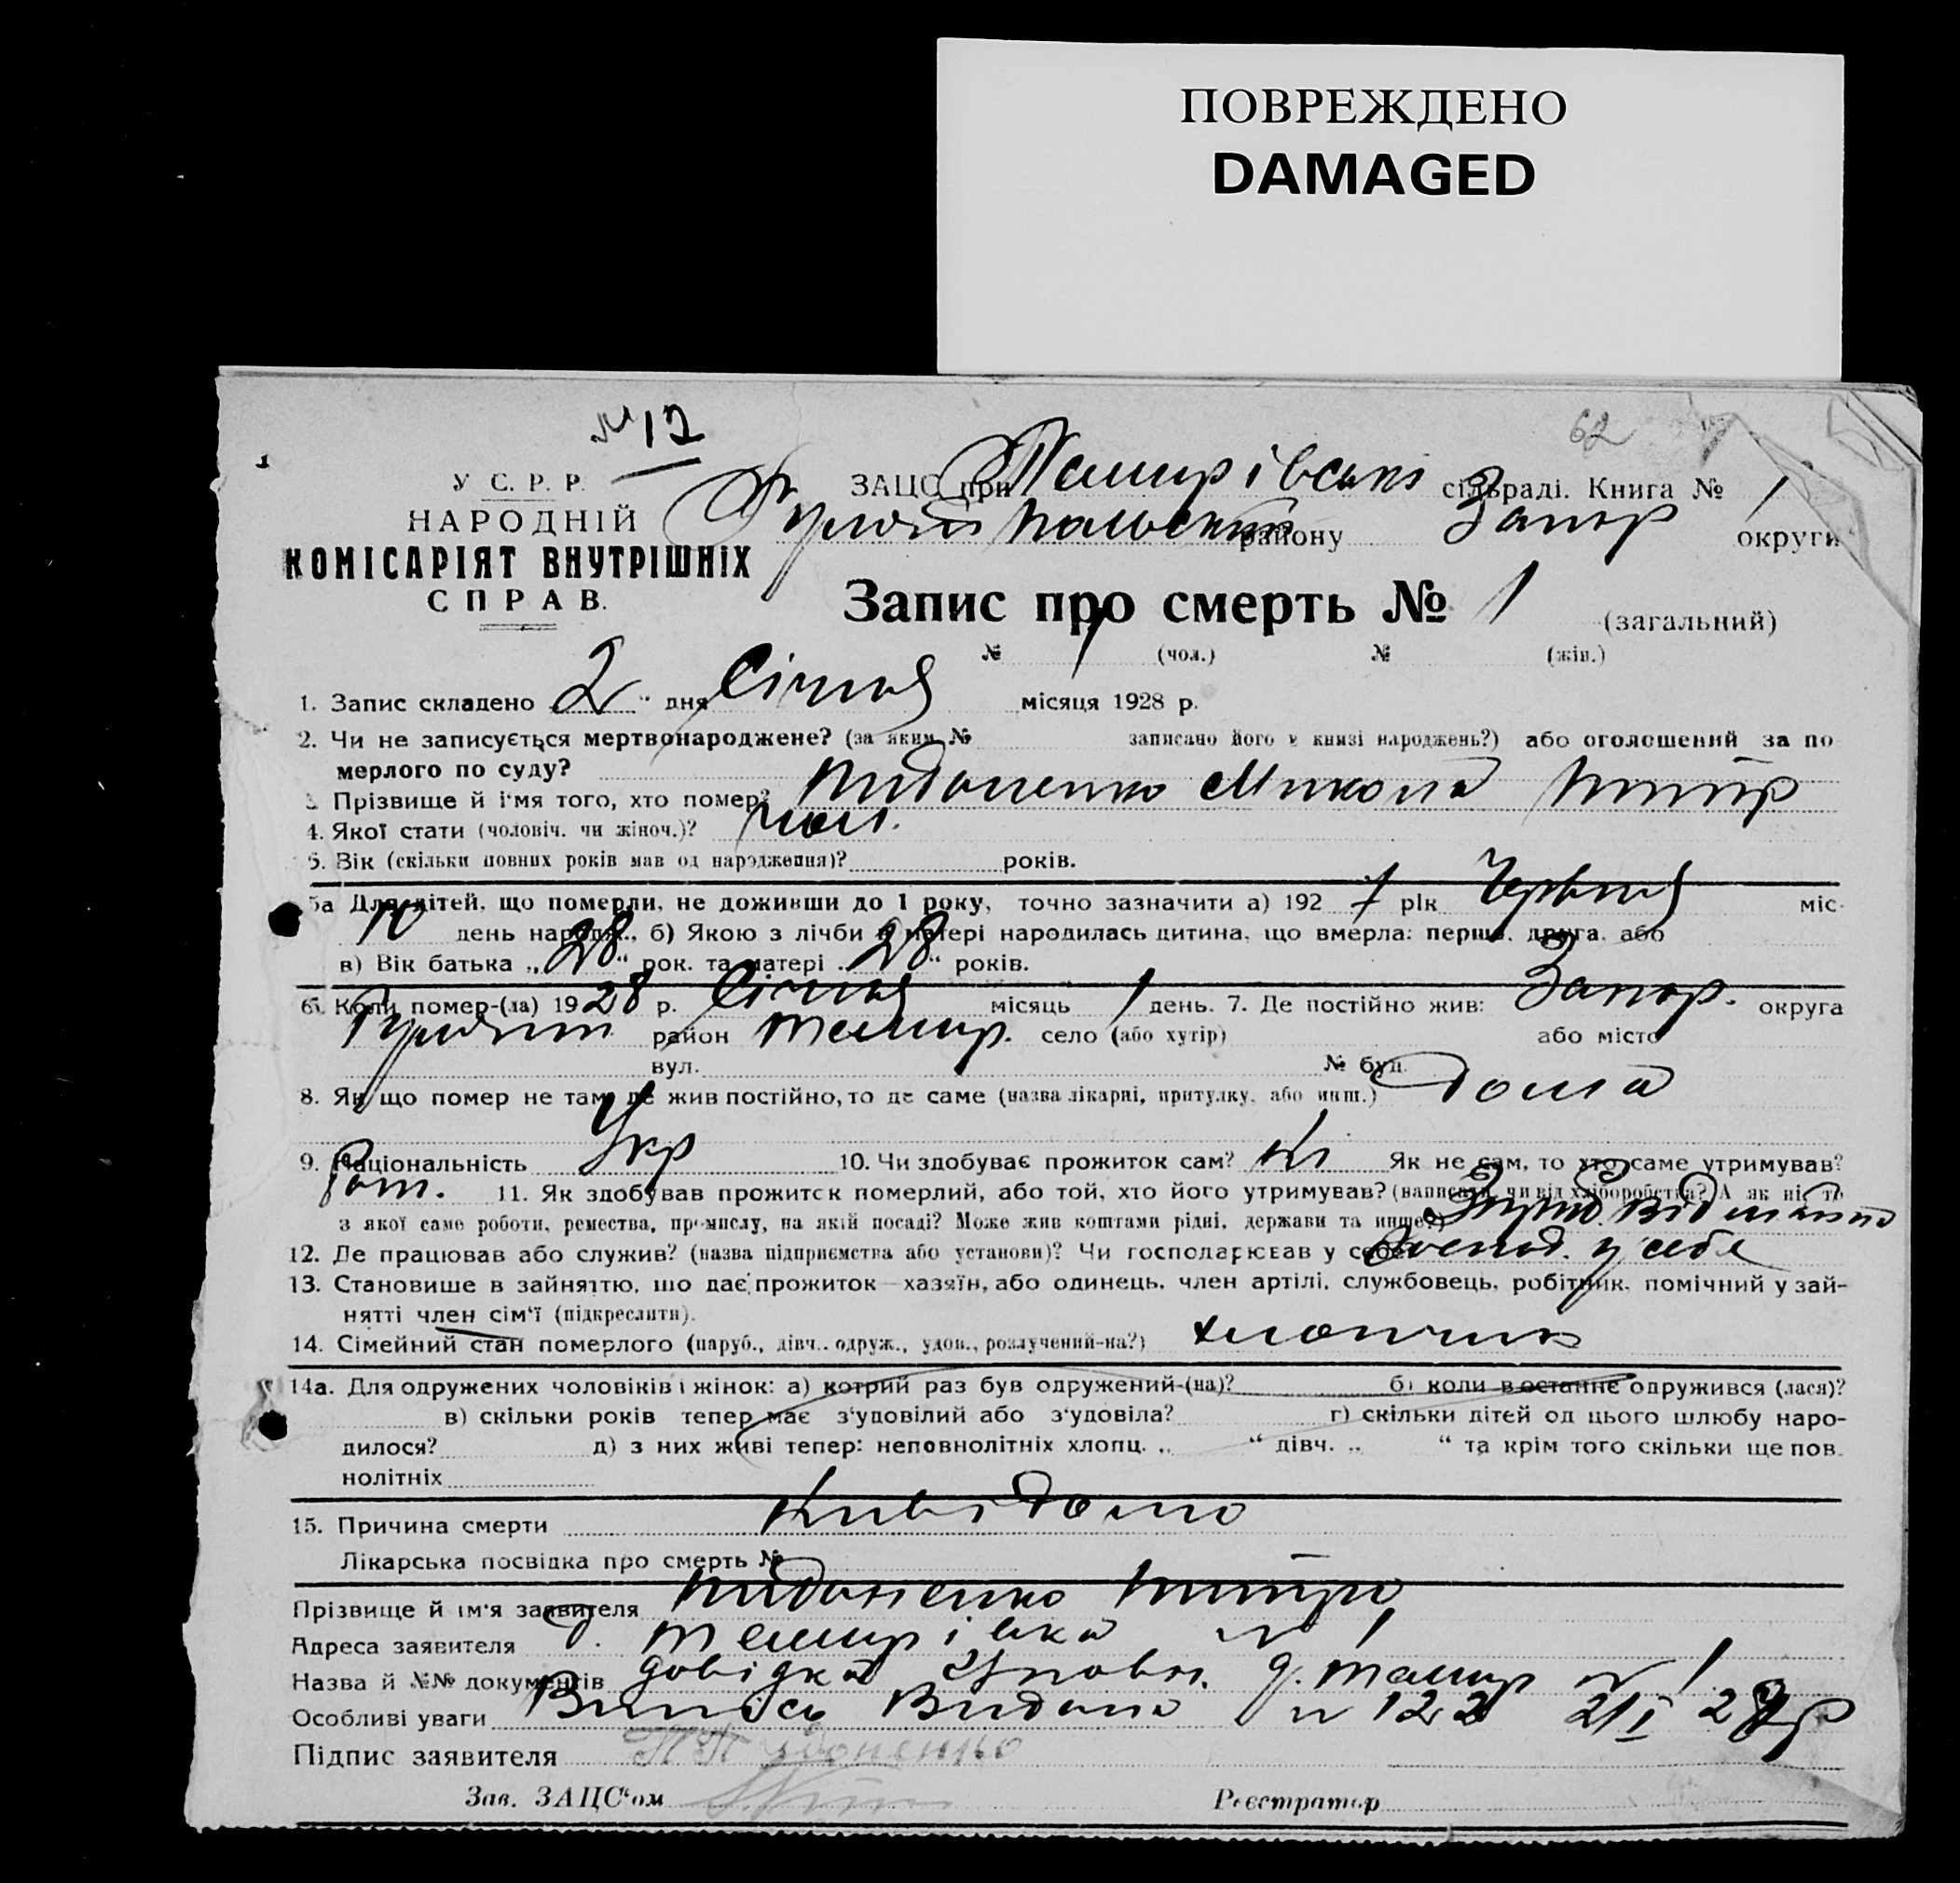 ПОВРЕЖДЕНО
DAMAGED
№ 12
62
У С. Р. Р.
НАРОДНІЙ
КОМІСАРІЯТ ВНУТРІШНІХ
СПРАВ.
ЗАЦС при Темирівські сільраді. Книга № 1
району Запор округи
Запис про смерть № 1 (загальний)
№ 1 (чол.) № (жін.)
1. Запис складено 2 " дня Січня місяця 1928 р.
2. Чи не записується мертвонароджене? (за яким № записано його в книзі народжень?) або оголошений за по
мерлого по суду?
3. Прізвище й ім'я того, хто помер? Микола
4. Якої стати (чоловіч. чи жіноч.)? чол.
5. Вік (скільки повних років мав од народження)? років.
5а Для дітей, що померли, не доживши до 1 року, точно зазначити а) 192 7 рік Червня міс.
10 день народж., б) Якою з лічби в матері народилась дитина, що вмерла: перша, друга, або
в) Вік батька „ 28 “ рок. та матері „ 28 “ років.
6. Коли помер-(ла) 19 28 р. Січня місяць 1 день. 7. Де постійно жив: Запор. округа
район Темир. село (або хутір) або місто
вул. № буд.
8. Якщо помер не там, де жив постійно, то де саме (назва лікарні, притулку, або инш.) Дома
9. Національність Укр 10. Чи здобуває прожиток сам? Ні Як не сам, то хто саме утримував?
Бат. 11. Як здобував прожиток померлий, або той, хто його утримував? (написати, чи від хліборобства? А як ні, то
з якої саме роботи, ремества, промислу, на якій посаді? Може жив коштами рідні, держави та инше?)
12. Де працював або служив? (назва підприємства або установи)? Чи господарював у себе? Господ. у себе
13. Становище в зайняттю, що дає прожиток—хазяїн, або одинець, член артілі, службовець, робітник, помічний у зай-
нятті член сім'ї (підкреслити).
14. Сімейний стан померлого (паруб., дівч., одруж., удов., розлучений-на?) хлопчик
14а. Для одружених чоловіків і жінок: а) котрий раз був одружений-(на)? б) коли востаннє одружився (лася)?
в) скільки років тепер має з'удовілий або з'удовіла? г) скільки дітей од цього шлюбу наро-
дилося? д) з них живі тепер: неповнолітніх хлопц. „ “ дівч. „ “ та крім того скільки ще пов.
нолітніх
15. Причина смерти Невідомо
Лікарська посвідка про смерть №
Прізвище й ім'я заявителя
Адреса заявителя с. Темирівка № 1
Назва й №№ документів довідка Уповн. д. Темир № 1
Особливі уваги Випись Видана № 122 2/I 28 р
Підпис заявителя
Зав. ЗАЦС'ом Реєстратор